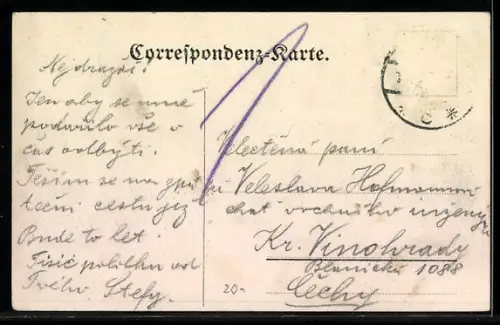 Correspondenz-Karte.
Nejdražší!
Jen aby se mně
podařilo vše v
čas odbýti.
Těším se na zpá
teční cestu již
Bude to let.
Tisíc polibků od
Tvého Stefy.
Velectěná paní
Veleslava Hofmannová
chot vrchního inženýra
Kr. Vinohrady
Blanická 1088
Čechy
20-